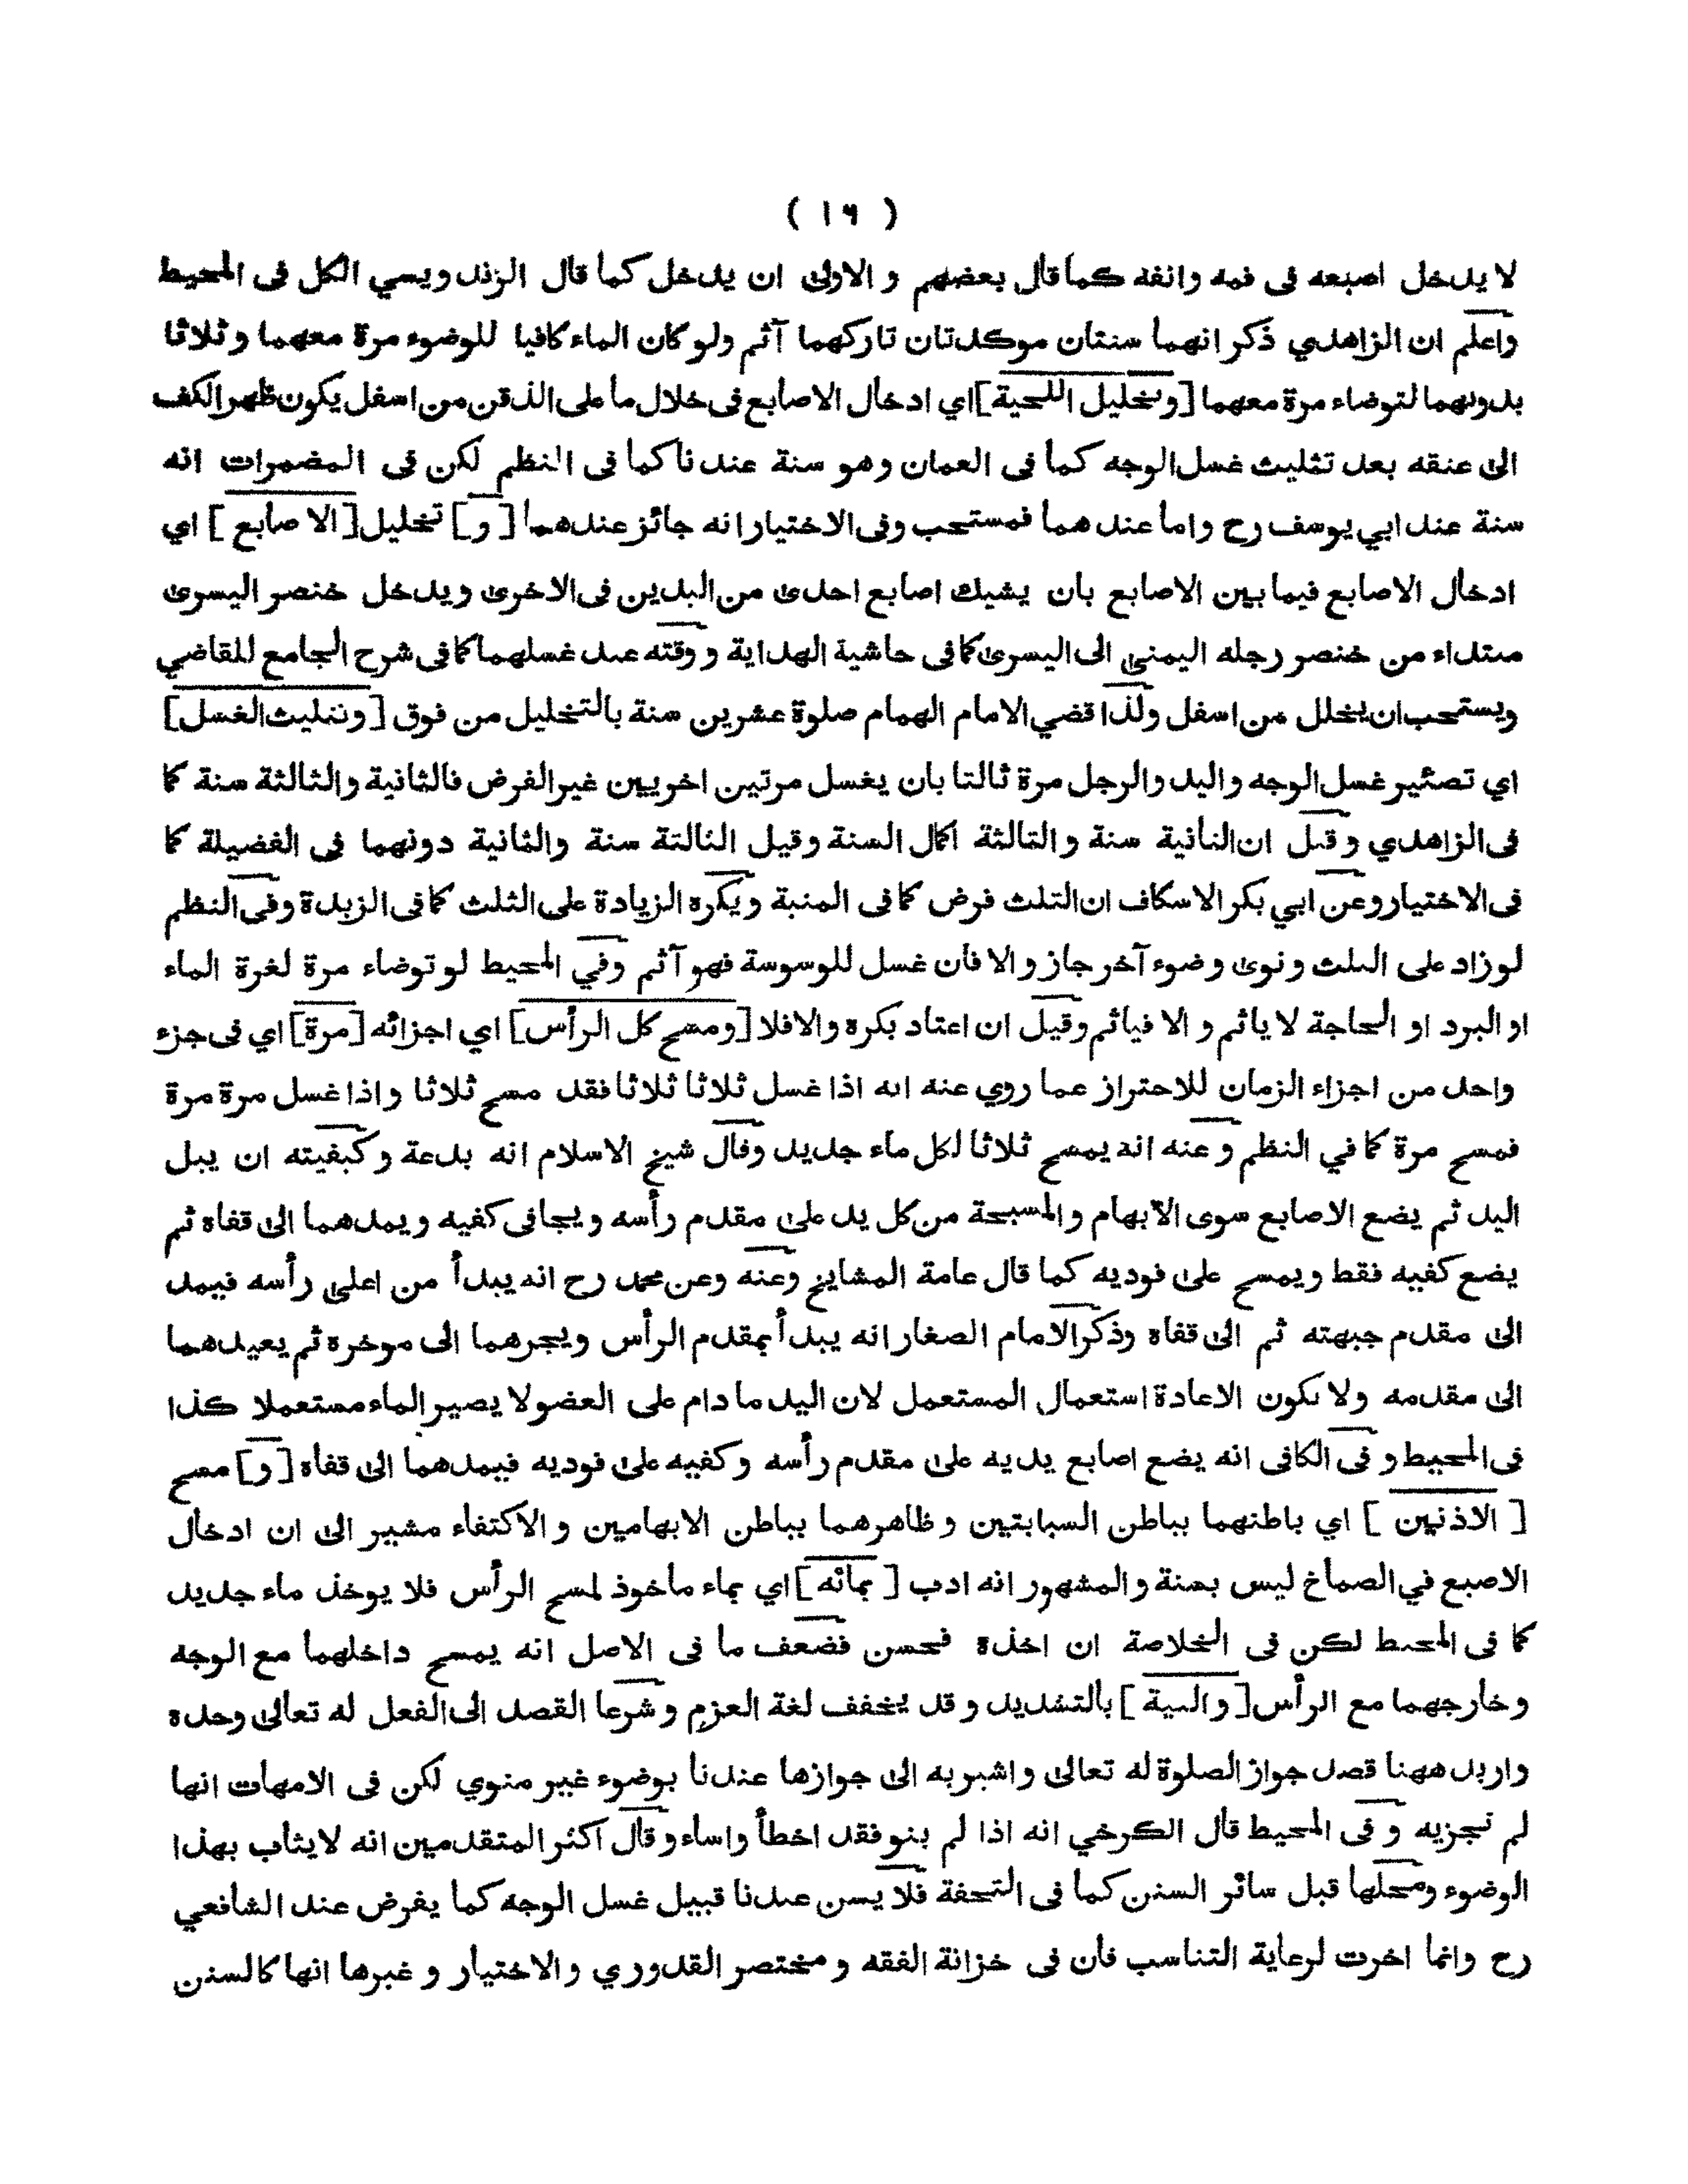 ( ١٦ )
لا يدخل اصبعه فى فمه وانفه كما قال بعضهم و الاولى ان يدخل كما قال الزند ويسي الكل فى المحيط
واعلم ان الزاهدي ذكر انهما سنتان موكدتان تاركهما آثم ولو كان الماء كافيا للوضوء مرة معهما و ثلاثا
بدونهما لتوضاء مرة معهما [وتخليل اللحية] اي ادخال الاصابع فى خلال ما على الذقن من اسفل يكون ظهر الكف
الى عنقه بعد تثليث غسل الوجه كما فى العمان وهو سنة عندنا كما فى النظم لكن فى المضمرات انه
سنة عند ابي يوسف رح واما عندهما فمستحب وفى الاختيار انه جائز عندهما [و] تخليل [الاصابع] اي
ادخال الاصابع فيما بين الاصابع بان يشبك اصابع احدى من اليدين فى الاخرى ويدخل خنصر اليسرى
مبتداء من خنصر رجله اليمنى الى اليسرى كما فى حاشية الهداية ووقته عند غسلهما كما فى شرح الجامع للقاضي
ويستحب ان يخلل من اسفل ولذا قضي الامام الهمام صلوة عشرين سنة بالتخليل من فوق [وتثليث الغسل]
اي تصئير غسل الوجه واليد والرجل مرة ثالثا بان يغسل مرتين اخريين غير الفرض فالثانية والثالثة سنة كما
فى الزاهدي وقيل ان الثانية سنة و الثالثة اكمال السنة وقيل الثالثة سنة والثانية دونهما فى الفضيلة كما
فى الاختيار وعن ابي بكر الاسكاف ان الثلث فرض كما فى المنية ويكره الزيادة على الثلث كما فى الزبدة وفى النظم
لو زاد على الثلث ونوى وضوء آخر جاز والا فان غسل للوسوسة فهو آثم وفي المحيط لو توضاء مرة لغرة الماء
او البرد او الحاجة لا ياثم و الا فياثم وقيل ان اعتاد يكره والافلا [ومسح كل الرأس] اي اجزائه [مرة] اي فى جزء
واحد من اجزاء الزمان للاحتراز عما روي عنه انه اذا غسل ثلاثا ثلاثا فقد مسح ثلاثا واذا غسل مرة مرة
فمسح مرة كما في النظم وعنه انه يمسح ثلاثا لكل ماء جديد وقال شيخ الاسلام انه بدعة وكيفيته ان يبل
اليد ثم يضع الاصابع سوى الابهام والمسبحة من كل يد على مقدم رأسه ويجافى كفيه ويمدهما الى قفاه ثم
يضع كفيه فقط ويمسح على فوديه كما قال عامة المشايخ وعنه وعن محمد رح انه يبدأ من اعلى رأسه فيمد
الى مقدم جبهته ثم الى قفاه وذكر الامام الصفار انه يبدأ بمقدم الرأس ويجرهما الى موخره ثم يعيدهما
الى مقدمه ولا يكون الاعادة استعمال المستعمل لان اليد ما دام على العضو لا يصير الماء مستعملا كذا
فى المحيط و فى الكافى انه يضع اصابع يديه على مقدم رأسه وكفيه على فوديه فيمدهما الى قفاه [و] مسح
[ الاذنين ] اي باطنهما بباطن السبابتين و ظاهرهما بباطن الابهامين و الاكتفاء مشير الى ان ادخال
الاصبع في الصماخ ليس بسنة والمشهور انه ادب [ بمائه ] اي بماء ماخوذ لمسح الرأس فلا يوخذ ماء جديد
كما فى المحيط لكن فى الخلاصة ان اخذه فحسن فضعف ما فى الاصل انه يمسح داخلهما مع الوجه
وخارجهما مع الرأس [ والنية ] بالتشديد و قد يخفف لغة العزم وشرعا القصد الى الفعل له تعالى وحده
واريد ههنا قصد جواز الصلوة له تعالى واشير به الى جوازها عندنا بوضوء غير منوي لكن فى الامهات انها
لم تجزيه و فى المحيط قال الكرخي انه اذا لم ينو فقد اخطأ واساء وقال اكثر المتقدمين انه لايثاب بهذا
الوضوء ومحلها قبل سائر السنن كما فى التحفة فلا يسن عندنا قبيل غسل الوجه كما يفرض عند الشافعي
رح وانما اخرت لرعاية التناسب فان فى خزانة الفقه و مختصر القدوري والاختيار و غيرها انها كالسنن